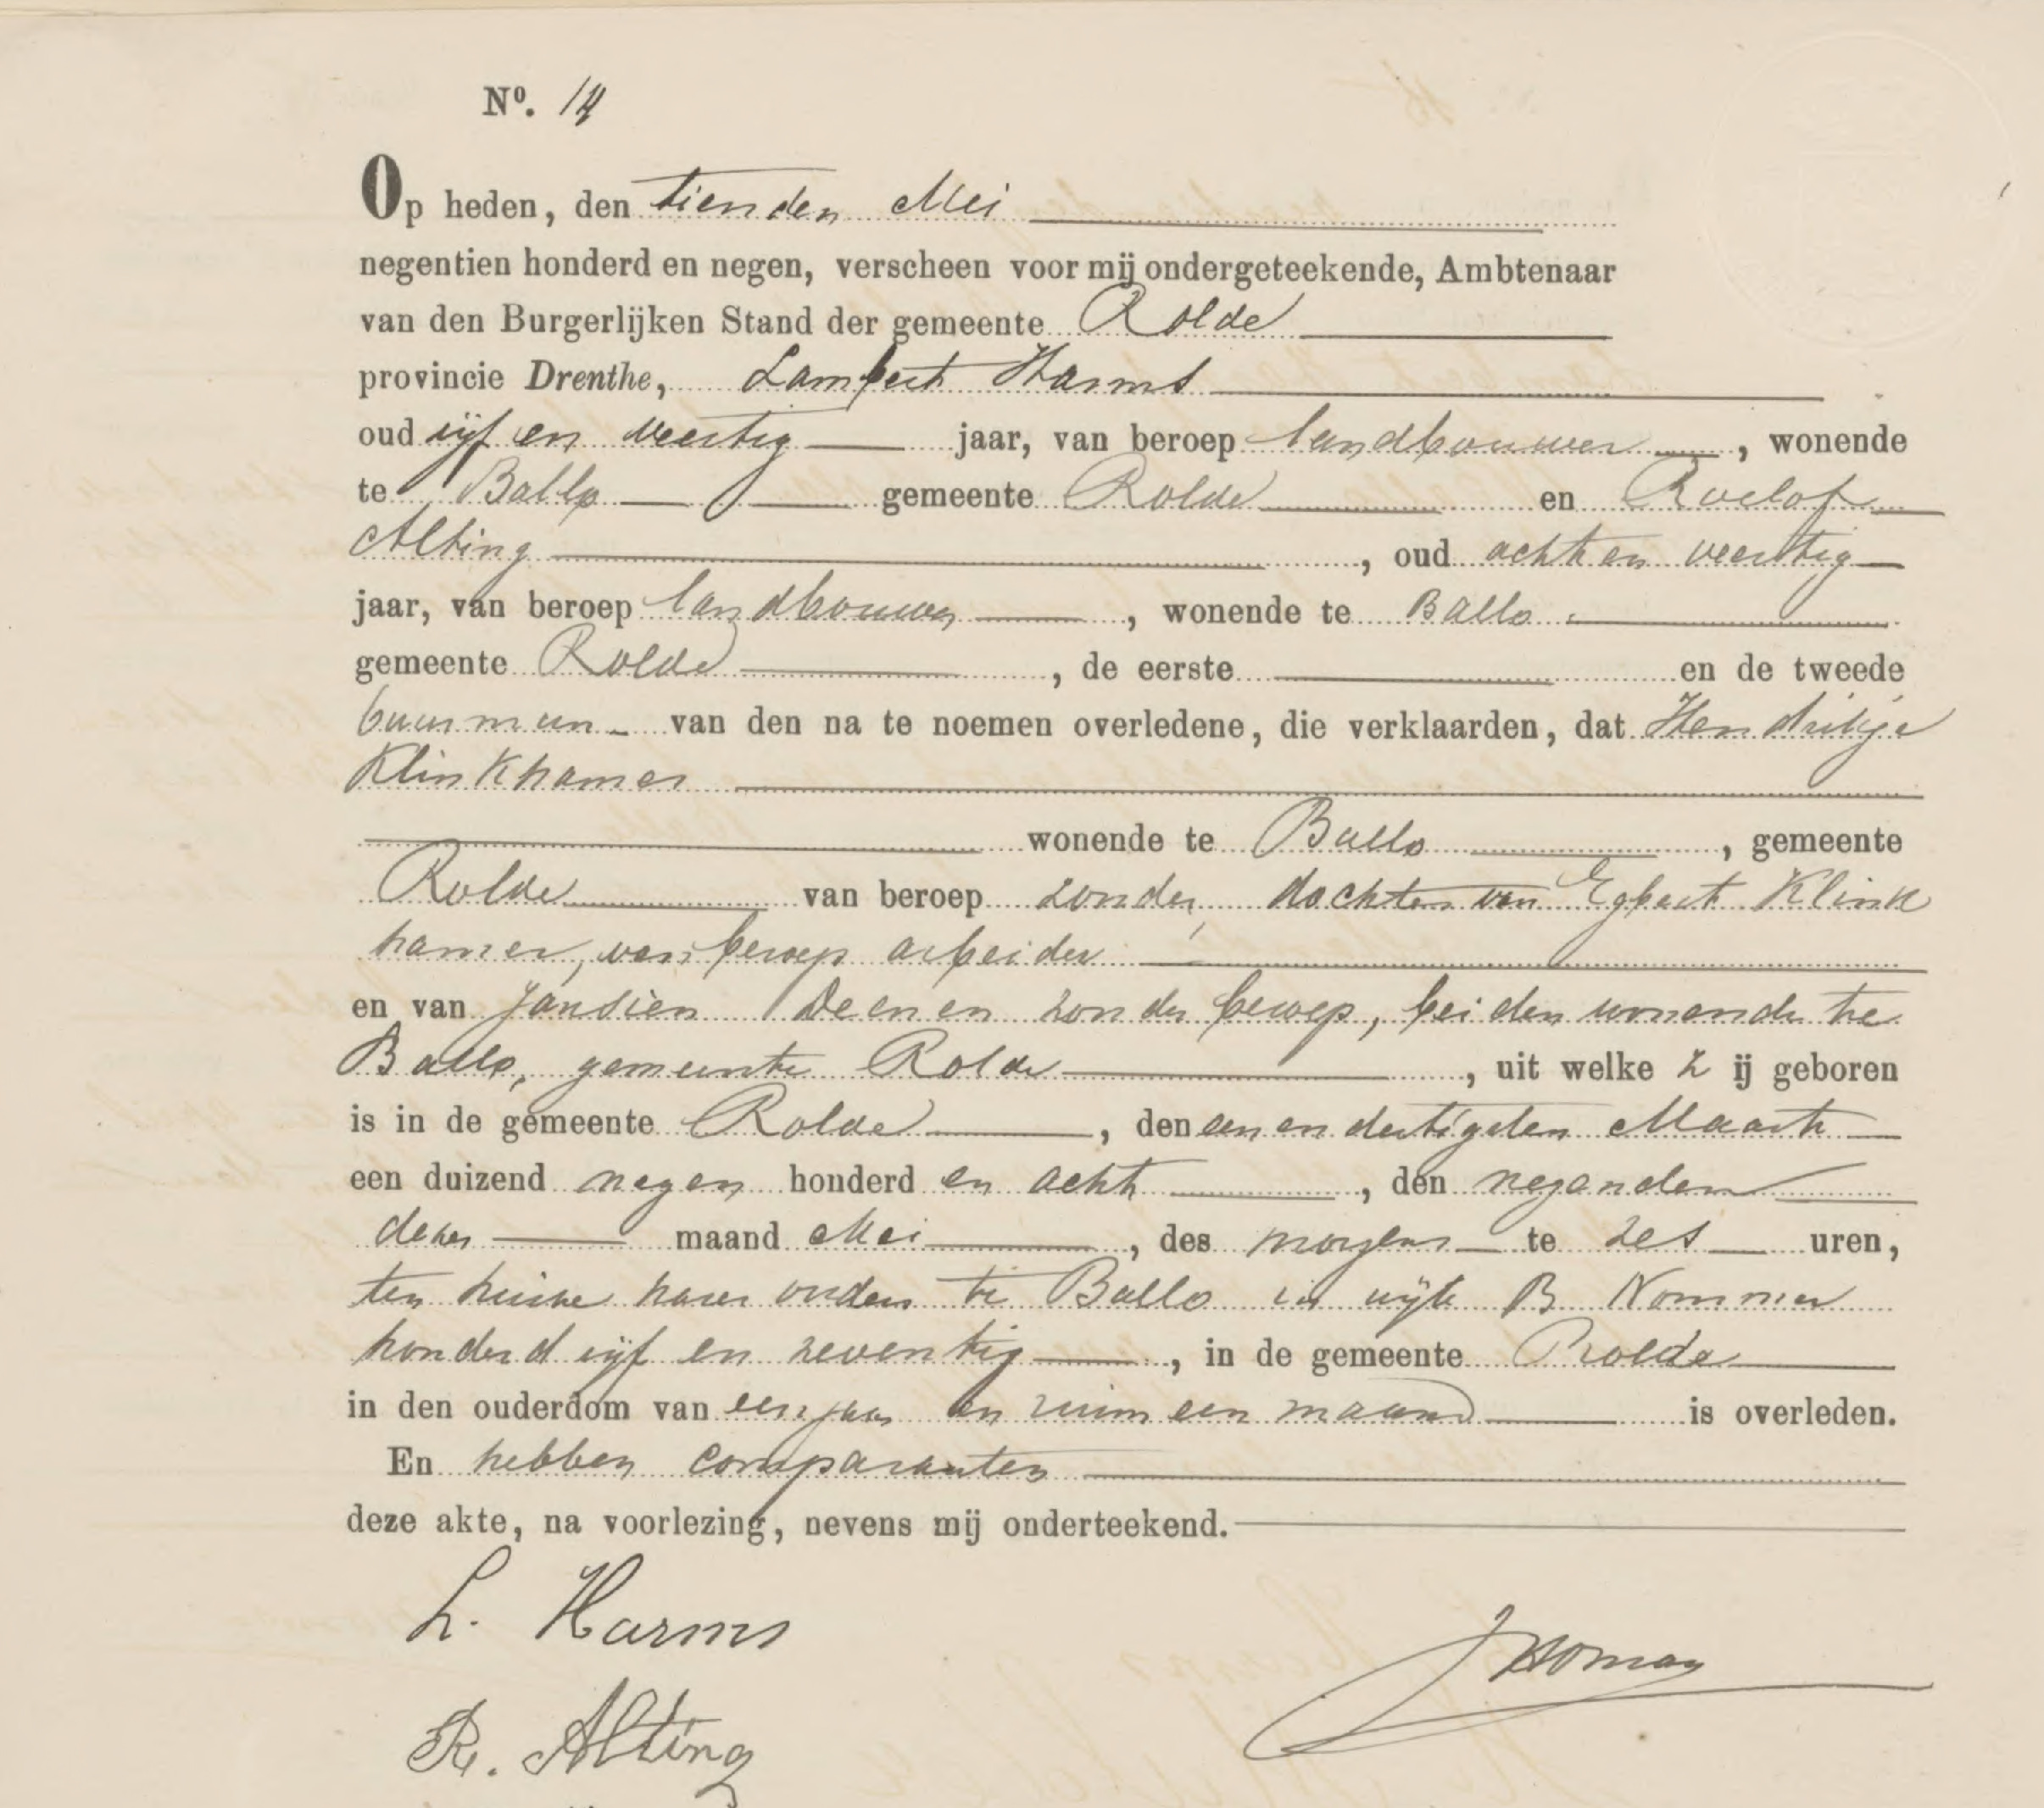 Nº. 14
Op heden, den tienden Mei
negentien honderd en negen, verscheen voor mij ondergeteekende, Ambtenaar
van den Burgerlijken Stand der gemeente Rolde
provincie Drenthe, Lambert Harms
oud vijf en veertig jaar, van beroep landbouwer, wonende
te Ballo gemeente Rolde en Roelof
Alting, oud acht en veertig
jaar, van beroep landbouwer, wonende te Ballo
gemeente Rolde, de eerste en de tweede
buurman van den na te noemen overledene, die verklaarden, dat Hendrikje
Klinkhamer
wonende te Ballo, gemeente
Rolde van beroep zonder, dochter van Egbert Klink
hamer, van beroep arbeider
en van Jansien Deenen zonder beroep, beiden wonende te
Ballo, gemeente Rolde, uit welke zij geboren
is in de gemeente Rolde, den een en dertigsten Maart
een duizend negen honderd en acht, den negenden
dezer maand Mei, des morgens te zes uren,
ten huize harer ouders te Ballo in wijk B Nommer
honderd vijf en zeventig, in de gemeente Rolde
in den ouderdom van een jaar en ruim een maand is overleden.
En hebben comparanten
deze akte, na voorlezing, nevens mij onderteekend.
L. Harms
JHoman
R. Alting